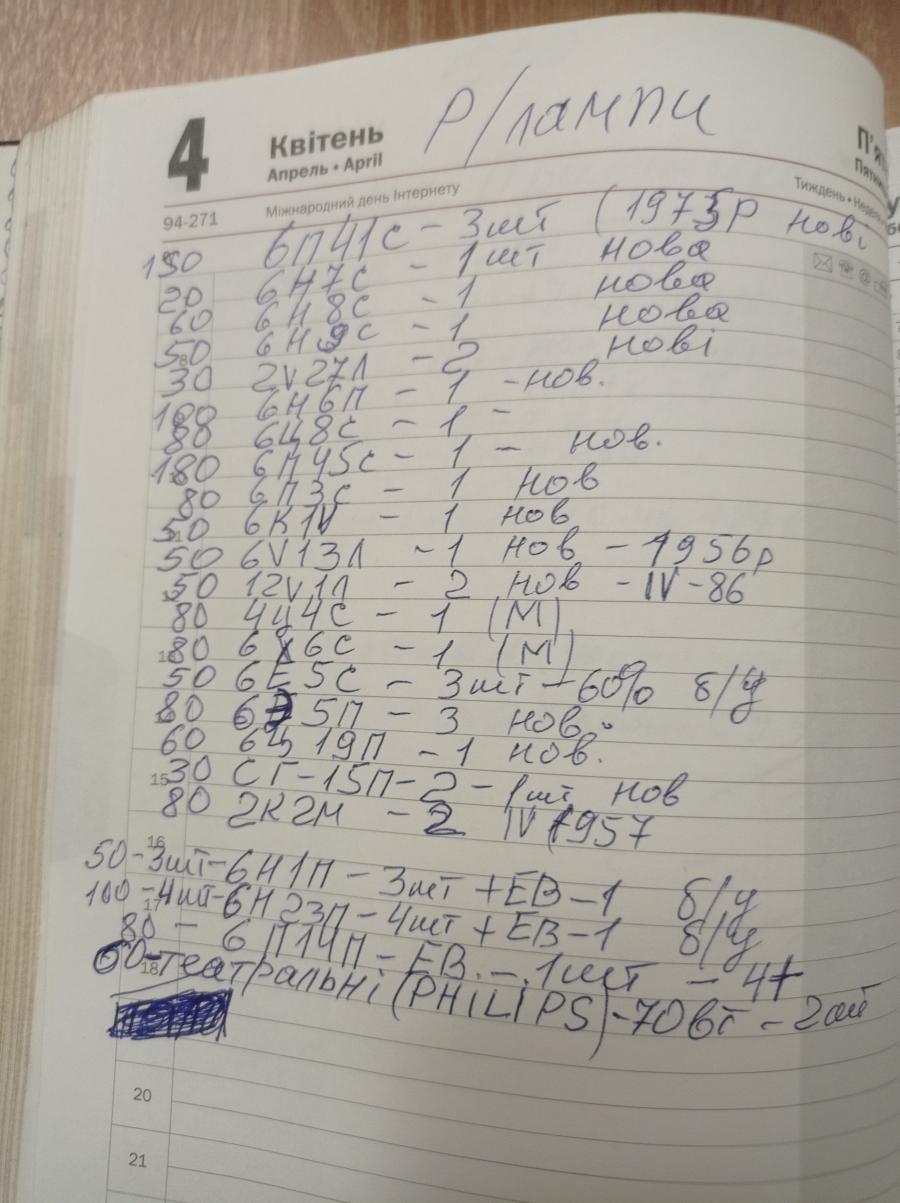 4
Квітень
Апрель • April
Р/лампи
П'я
Пятни
94-271
Міжнародний день Інтернету
Тиждень • Неделя
6П41С - 3шт (1975р нові
150 6Н7С - 1шт нова
20 6Н8С - 1 нова
60 6Н9С - 1 нова
50 2V27Л - 2 нові
30 6Н6П - 1 - нов.
100 6Ц8С - 1 -
80 6П45С - 1 - нов.
180 6П3С - 1 нов
80 6К1V - 1 нов
50 6V13Л - 1 нов - 1956р
50 12V1Л - 2 нов - IV - 86
50 4Ц4С - 1 (М)
80 6Х6С - 1 (М)
80 6Е5С - 3шт - 60% б/у
50 6Э5П - 3 нов.
80 6Ц19П - 1 нов.
60 СГ-15П - 2 - 1шт нов
30 2К2М - 2 IV 1957
80
15
16
50 - 3шт - 6Н1П - 3шт + ЕВ - 1 б/у
100 - 4шт - 6Н23П - 4шт + ЕВ - 1 б/у
17
80 - 6П14П - ЕВ. - 1шт - 4+
60 - театральні (PHILIPS) - 70вт - 2шт
18
20
21